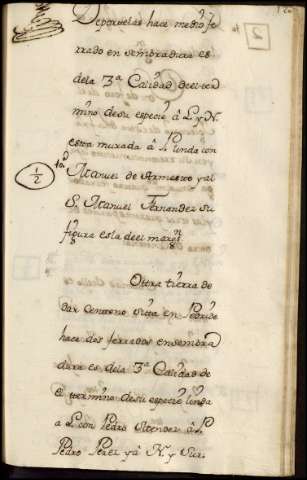 Deporuelas hace medio fe
rrado en sembradura es
dela 3ª Calidad deel ter
mino desu especie à L y N.
esta murada à P. linda con
Manuel de Armesto y al
S. Manuel Fernandez su
figura es la deel margn
1/2
Otra tierra de
dar Centeno sita en
hace dos ferrados ensembra
dura es dela 3ª Calidad de
el termino desu especie linda
a L con Pedro Mendez à P.
Pedro Perez yà N. y Sur.